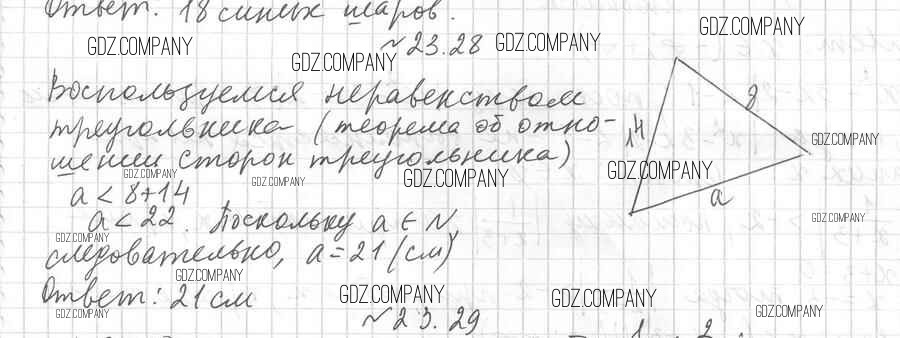 Ответ: 18 синих шаров.
GDZ.COMPANY
№ 23.28
GDZ.COMPANY
GDZ.COMPANY
GDZ.COMPANY
Воспользуемся неравенством
треугольника (теорема об отно-
шении сторон треугольника)
8
14
a
GDZ.COMPANY
GDZ.COMPANY
GDZ.COMPANY
GDZ.COMPANY
GDZ.COMPANY
a < 8+14
a < 22. Поскольку a ∈ N,
GDZ.COMPANY
GDZ.COMPANY
следовательно, a = 21 (см)
GDZ.COMPANY
Ответ: 21 см
GDZ.COMPANY
GDZ.COMPANY
GDZ.COMPANY
GDZ.COMPANY
№ 23.29